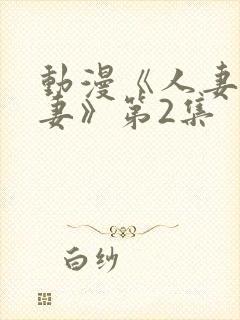 動漫《人妻
妻》第2集
白纱